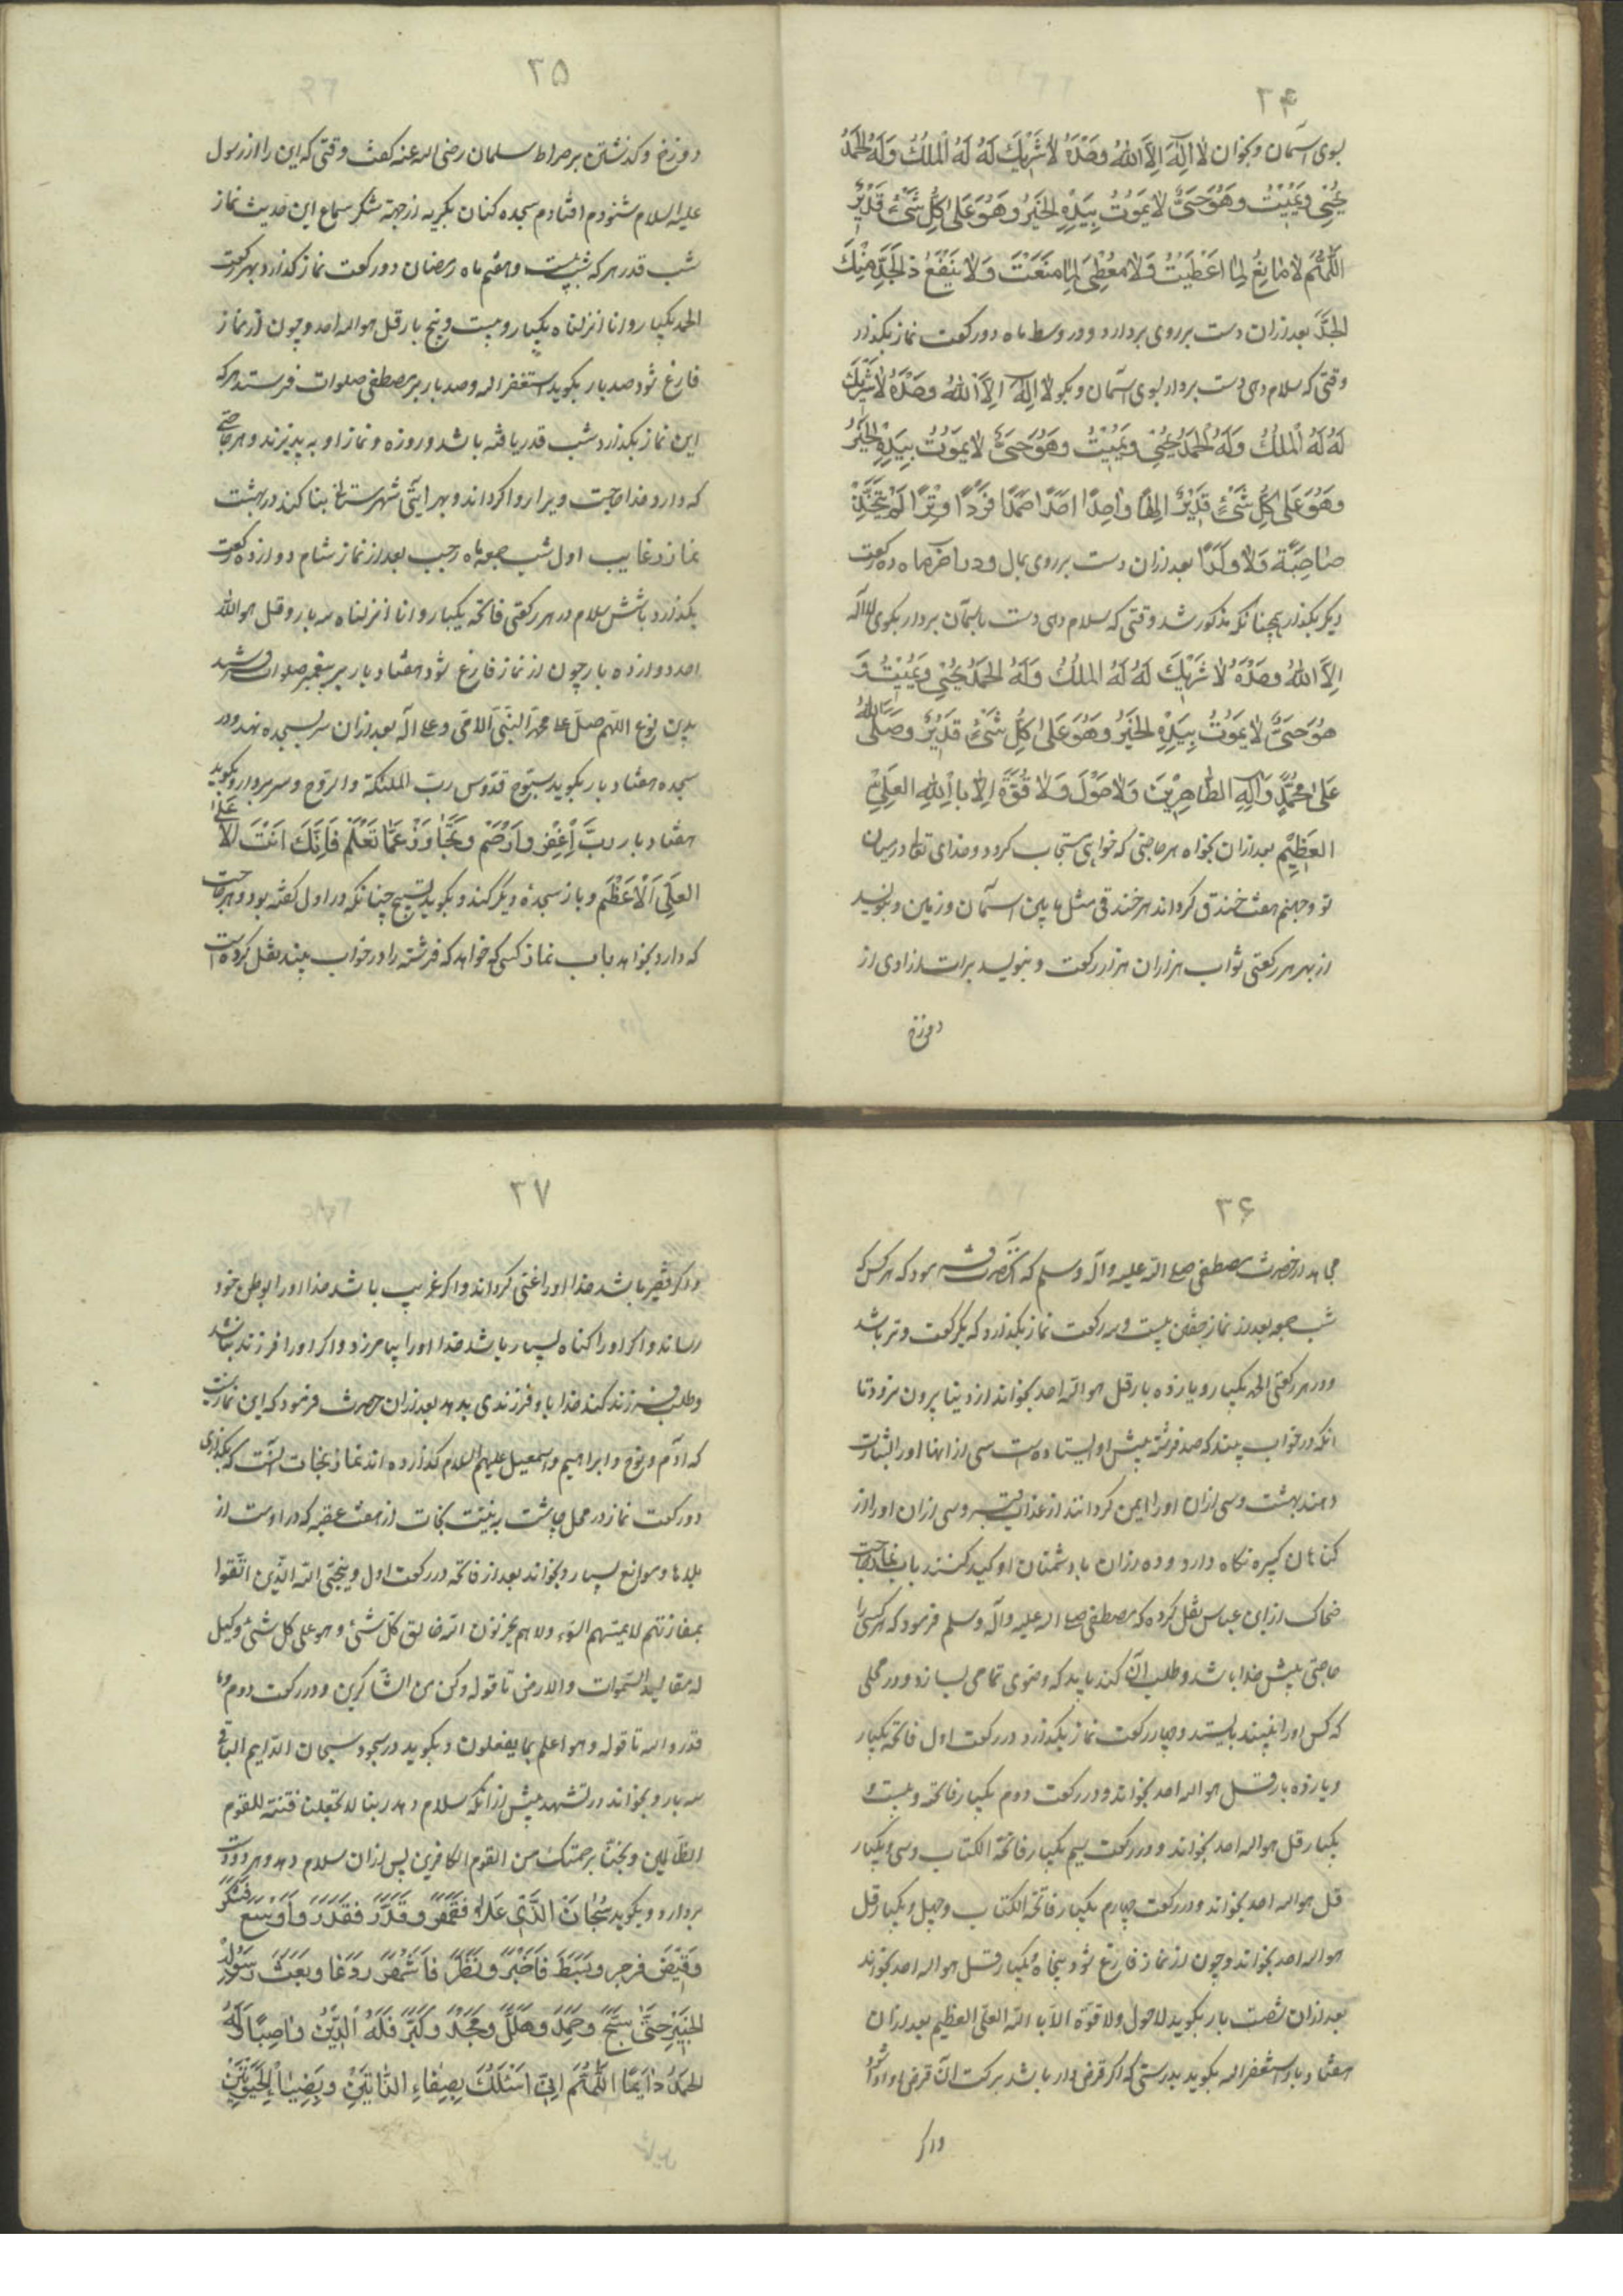 ۳۴
بسوی آسمان و بخوان لا اِلٰهَ اِلاَّ اللهُ وحْدَهُ لا شَرِیْكَ لَهُ لَهُ الْمُلْكُ وَلَهُ الْحَمْدُ
یُحْیِی وَیُمِیْتُ وهُوَ حَیٌّ لا یَمُوْتُ بِیَدِهِ الْخَیْرُ وهُوَ عَلیٰ كُلِّ شَیْیٍٔ قَدِیْرٌ
اَللّٰهُمَّ لا مانِعَ لِما اَعْطَیْتَ وَلا مُعْطِیَ لِما مَنَعْتَ وَلا یَنْفَعُ ذَالْجَدِّ مِنْكَ
الْجَدَّ بعد ازان دست برروی بردارد و در وسط ماه دو ركعت نماز بگذار
وقتی كه سلام دهی دست بردار بسوی آسمان و بگو لا اِلٰهَ اِلاَّ اللهُ وحْدَهُ لا شَرِیْكَ
لَهُ لَهُ الْمُلْكُ وَلَهُ الْحَمْدُ یُحْیِی ویُمِیْتُ وهُوَ حَیٌّ لا یَمُوْتُ بِیَدِهِ الْخَیْرُ
وهُوَ عَلی كُلِّ شَیْیٍٔ قَدِیْرٌ اِلٰهًا واحِدًا اَحَدًا صَمَدًا فَرْدًا وِتْرًا لَمْ یَتَّخِذْ
صاحِبَةً وَلا وَلَدًا بعد ازان دست برروی بمال و در آخر ماه ده ركعت
دیگر بگذار همچنانكه مذكور شد وقتی كه سلام دهی دست باسمان بردار بگوی لا اله
اِلاَّ اللهُ وحْدَهُ لا شَرِیْكَ لَهُ لَهُ الملْكُ وَلَهُ الحَمْدُ یُحْیِی وَیُمِیْتُ وَ
هُوَ حَیٌّ لا یَمُوْتُ بِیَدِهِ الْخَیْرُ وَهُوَ عَلیٰ كُلِّ شَیْیٍٔ قَدِیْرٌ وصَلَّی اللهُ
عَلیٰ مُحَمَّدٍ وَآلِهِ الطّاهِرِیْنَ وَلا حَوْلَ وَلا قُوَّةَ اِلاّ بِاللهِ العَلِیِّ
العَظِیْمِ بعد ازان بخواه هر حاجتی كه خواهی مستجاب كردد و خدای تعا در میان
تو و جهنم هفت خندق كرداند هر خندقی مثل مابین آسمان و زمین و بنویسد
از بهر هر ركعتی ثواب هزاران هزار ركعت و بنویسد برات ازادی از
دوزخ
۳۵
دوزخ و كذشتن بر صراط سلمان رضی الله عنه كفت وقتی كه این را از رسول
علیه السلام شنودم افتادم سجده كنان بكریه از جهة شكر سماع این حدیث نماز
شب قدر هر كه شب بیست و هفتم ماه رمضان دو ركعت نماز كذارد بهر ركعت
الحمد یكبار و انا انزلناه یكبار و بیست و پنج بار قل هو الله احد و چون از نماز
فارغ شود صد بار بكوید استغفر الله و صد بار بر مصطفی صلوات فرستد هر كه
این نماز بكذارد شب قدر یافته باشد و روزه و نماز او به پذیرند و هر حاجتی
كه دارد خدا حاجت ویرا روا كرداند و بهر آیتی شهرستانی بنا كند در بهشت
نماز رغایب اول شب جمعه ماه رجب بعد از نماز شام دوازده ركعت
بكذارد بشش سلام در هر ركعتی فاتحه یكبار و انا انزلناه سه بار و قل هو الله
احد دوازده بار چون از نماز فارغ شود هفتاد بار بر پیغمبر صلوات فرستد
بدین نوع اللهم صل علی محمّد النّبیّ الامّی و علی آله بعد ازان سر بسجده نهد و در
سجده هفتاد بار بكوید سبّوح قدّوس ربّ الملئكة والرّوح و سر بردارد و بكوید
هفتاد بار رَبِّ اغْفِرْ وارْحَمْ وتَجاوَزْ عَمَّا تَعْلَمُ فَاِنَّكَ اَنْتَ الاَعْلَی
العَلِیُّ الْاَعْظَم و باز سجدهٔ دیكر كند و بكوید تسبیح چنانكه در اول كفته بود و هر حاجت
كه دارد بخواهد باب نماز كسی كه خواهد كه فرشته را در خواب بیند نقل كرده است
۳۶
مجاهد از حضرت مصطفی صلی الله علیه وآله وسلم كه آنحضرت فرمود كه هر كس كه
شب جمعه بعد از نماز خفتن بیست و سه ركعت نماز بكذارد كه یكركعت وتر باشد
و در هر ركعتی الحمد یكبار و یازده بار قل هو الله احد بخواند از دنیا بیرون نرود تا
انكه در خواب بیند كه صد فرشته پیش او ایستاده است سی از انها او را بشارت
دهند ببهشت و سی ازان او را ایمن كردانند از عذاب قبر و سی ازان او را از
كناهان كبیره نكاه دارد و ده ازان با دشمنان او كید كنند باب نماز حاجت
ضحاك از ابن عباس نقل كرده كه مصطفی صلی الله علیه وآله وسلم فرمود كه هر كسی را
حاجتی پیش خدا باشد و طلب آن كند باید كه وضوی تمامی بسازد و در محلی
كه كس او را نبیند بایستد و چهار ركعت نماز بكذارد در ركعت اول فاتحه یكبار
و یازده بار قل هو الله احد بخواند و در ركعت دوم یكبار فاتحه و بیست و
یكبار قل هو الله احد بخواند و در ركعت سیم یكبار فاتحة الكتاب و سی و یكبار
قل هو الله احد بخواند و در ركعت چهارم یكبار فاتحة الكتاب و چهل و یكبار قل
هو الله احد بخواند و چون از نماز فارغ شود پنجاه و یكبار قل هو الله احد بخواند
بعد ازان شصت بار بكوید لاحول ولا قوّة الاّ بالله العلیّ العظیم بعد ازان
هفتاد بار استغفر الله بكوید بدرستی كه اكر قرض دار باشد ببركت آن قرض او ادا شود
واكر
۳۷
واكر فقیر باشد خدا او را غنی كرداند و اكر غریب باشد خدا او را بوطن خود
رساند و اكر او را كناه بسیار باشد خدا او را بیامرزد و اكر او را فرزند نباشد
و طلب فرزند كند خدا باو فرزندی بدهد بعد ازان حضرت فرمود كه این نمازیست
كه آدم و نوح و ابراهیم و اسمعیل علیهم السلام كذارده اند نماز نجات انست كه بكذاری
دو ركعت نماز در محل چاشت به نیّت نجات از هفت عقبه كه در اوست از
بلاها و موانع بسیار و بخواند بعد از فاتحه در ركعت اول وینجّی الله الّذین اتّقوا
بمفازتهم لا یمسّهم السّوء ولا هم یحزنون الله خالق كلّ شیٔ وهو علی كل شیٔ وكیل
له مقالید السّموات والارض تا قوله وكن من الشّاكرین و در ركعت دوم وما
قدروا الله تا قوله وهو اعلم بما یفعلون و بكوید در سجود سبحان الدّایم الباقی
سه بار و بخواند در تشهد پیش از انكه سلام دهد ربنا لا تجعلنا فتنة للقوم
الظّالمین ونجّنا برحمتك من القوم الكافرین پس ازان سلام دهد و هر دو دست
بردارد و بكوید سُبْحانَ الَّذِی عَلا فَقَهَرَ وقَدَرَ فَقَدَّرَ
الحَمْدُ دائِمًا اَللّٰهُمَّ اِنِّی اَسْئَلُكَ